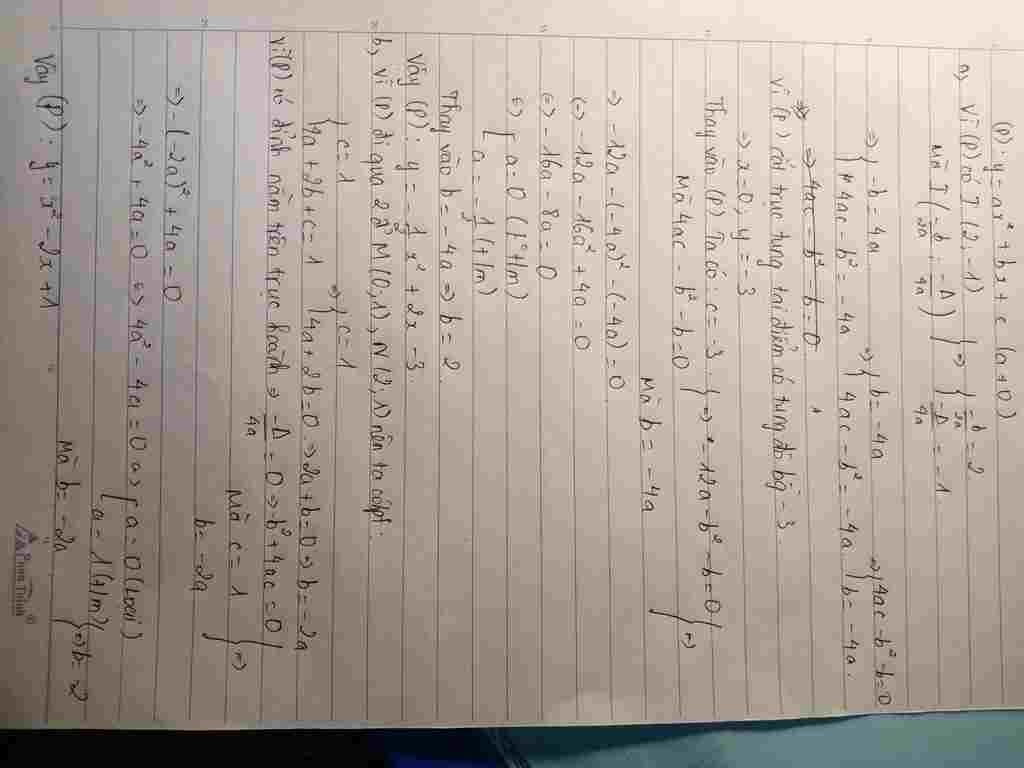 (P) y = ax² + bx + c (a ≠ 0)
a, Vì (P) có I (2, -1)
Mà I (-b/2a ; -Δ/4a) } => { -b/2a = 2
-Δ/4a = -1
=> { -b = 4a
4ac - b² = -4a => { b = -4a
4ac - b² = -4a => { 4ac - b² - b = 0
b = -4a.
=> 4ac - b² - b = 0
Vì (P) cắt trục tung tại điểm có tung độ bg - 3
=> x = 0, y = -3
Thay vào (P) Ta có: c = -3
Mà 4ac - b² - b = 0 } => -12a - b² - b = 0
Mà b = -4a } =>
=> -12a - (-4a)² - (-4a) = 0
(=) -12a - 16a² + 4a = 0
(=) -16a - 8a = 0
(=) [ a = 0 (l° t/m)
a = -1/2 (t/m)
Thay vào b = -4a => b = 2.
Vậy (P): y = -1/2 x² + 2x - 3.
b, Vì (P) đi qua 2 đ' M (0,1), N (2,1) nên ta có pt:
{ c = 1
4a + 2b + c = 1 => { c = 1
4a + 2b = 0 => 2a + b = 0 => b = -2a
Vì (P) có đỉnh nằm trên trục hoành => -Δ/4a = 0 => -b² + 4ac = 0
Mà c = 1
b = -2a } =>
=> -(-2a)² + 4a = 0
=> -4a² + 4a = 0 (=) 4a² - 4a = 0 (=) [ a = 0 (loại)
a = 1 (t/m)
Mà b = -2a } => b = -2
Vậy (P): y = x² - 2x + 1